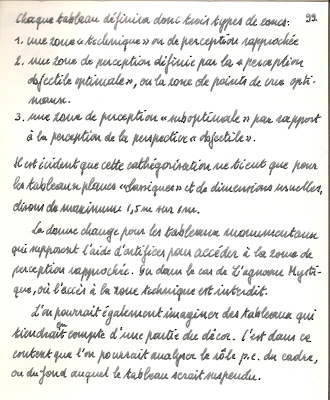 Chaque tableau définira donc trois types de zones: 99.
1. une zone "technique" ou de perception rapprochée
2. une zone de perception définie par la "perception
objectile optimale", ou la zone de points de vue opti-
maux.
3. une zone de perception "suboptimale" par rapport
à la perception de la perspective "objectile".
Il est évident que cette cathégorisation ne tient que pour
les tableaux planes "classiques" et de dimensions usuelles,
disons de maximum 1,5m sur 1m.
La donne change pour les tableaux monumentaux
qui supposent l'aide d'artifices pour accéder à la zone de
perception rapprochée. Ou dans le cas de L'agneau Mysti-
que, où l'accès à la zone technique est interdit.
L'on pourrait également imaginer des tableaux qui
tiendraient compte d'une partie du décor. C'est dans ce
contexte que l'on pourrait analyser le rôle p.e. du cadre,
ou du fond auquel le tableau serait suspendu.